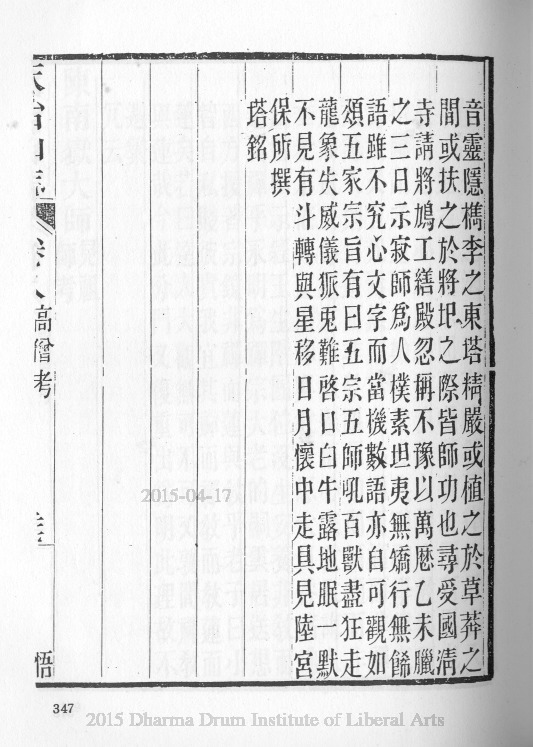 音靈隱檇李之東塔精嚴或植之於草莽之
間或扶之於將圯之際皆師功也尋受國清
寺請將鳩工繕殿忽稱不豫以萬曆乙未臘
之三日示寂師爲人樸素坦夷無矯行無餙
語雖不究心文字而當機數語亦自可觀如
頌五家宗旨有曰五宗五師吼百獸盡狂走
龍象失威儀狐兎難啓口白牛露地眠一默
不見有斗轉與星移日月懷中走具見陸宮
保所撰
塔銘
天台山志 卷八 高僧考
悟
2015-04-17
347
2015 Dharma Drum Institute of Liberal Arts